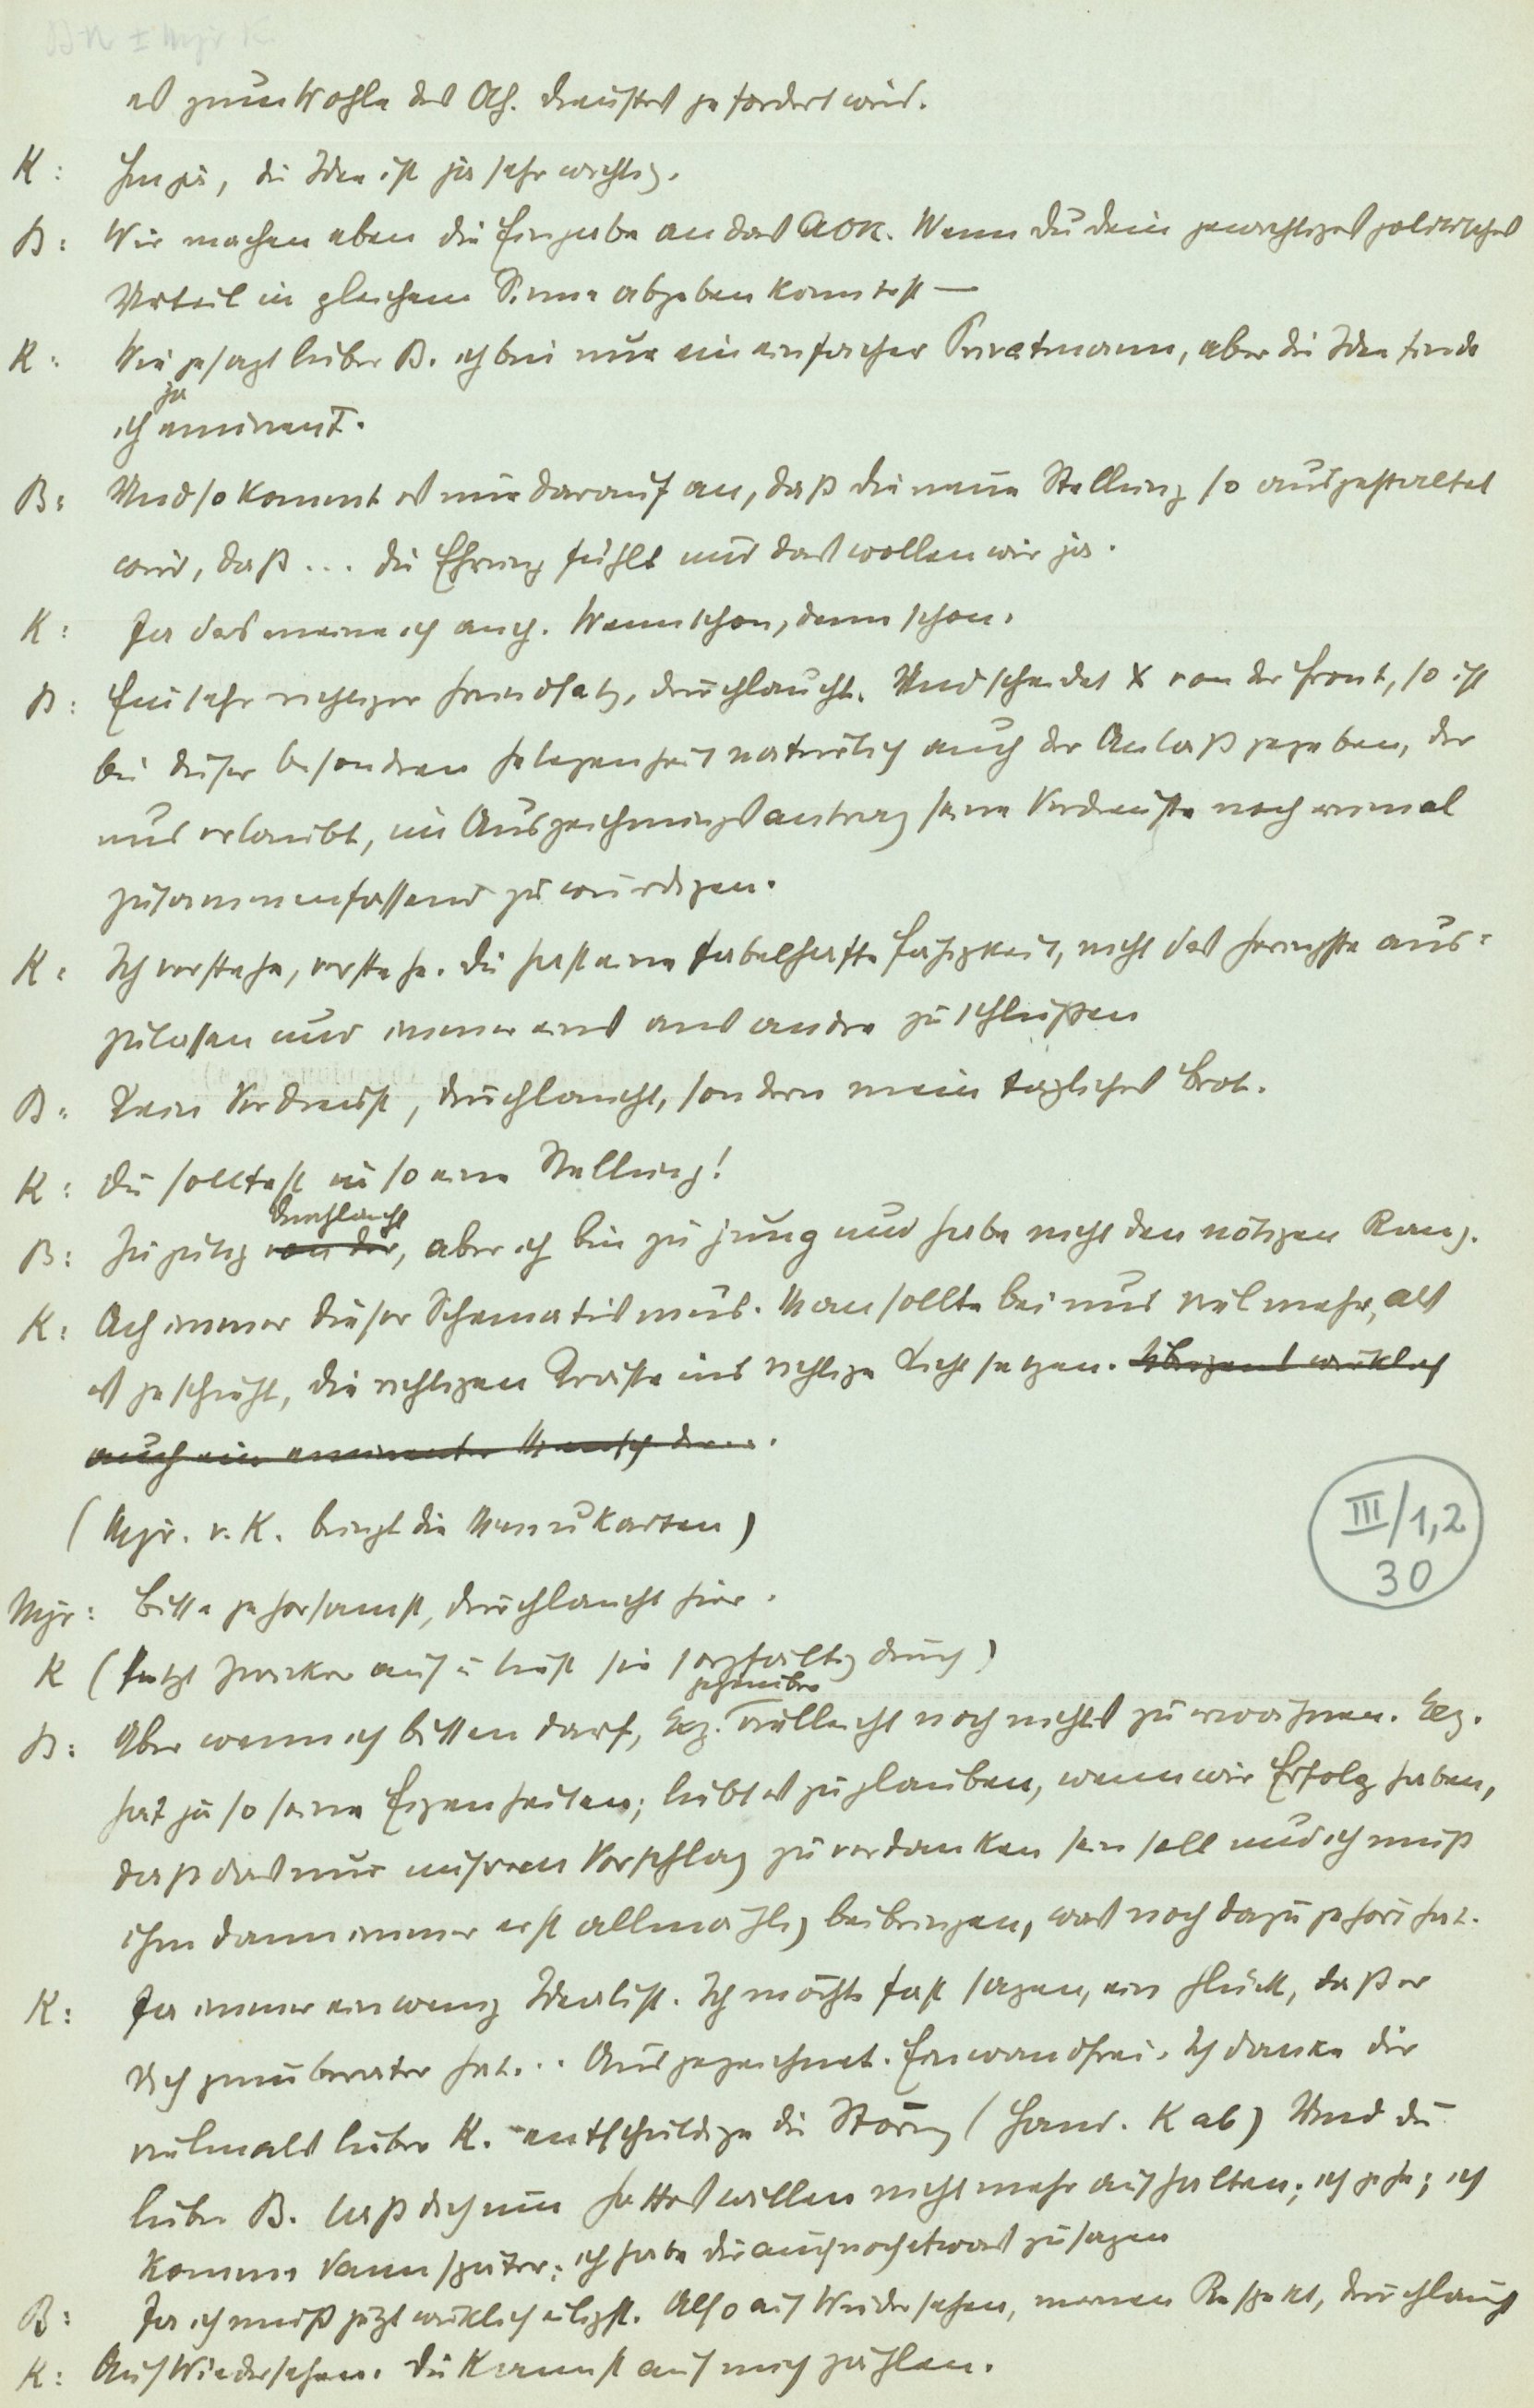 es zum Wohle des Ah. Dienstes gefördert wird.
K: Hm ja, die Idee ist ja sehr wichtig.
B: Wir machen eben die Eingabe an das AOK. Wenn du dein gewichtiges politisches
Urteil in gleichem Sinne abgeben könntest —
K: Wie gesagt lieber B. ich bin nur ein einfacher Privatmann, aber die Idee finde
ja
ich eminent.
B: Und so kommt es nur darauf an, daß die neue Stellung so ausgestaltet
wird, daß ... die Ehrung fühlt und das wollen wir ja.
K: Ja das meine ich auch. Wennschon, dennschon.
B: Ein sehr richtiger Grundsatz, Durchlaucht. Und scheidet X von der Front, so ist
bei dieser besondren Gelegenheit natürlich auch der Anlaß gegeben, der
uns erlaubt, im Auszeichnungsantrag seine Verdienste noch einmal
zusammenfassend zu würdigen.
K: Ich verstehe, verstehe. Du hast eine fabelhafte Fähigkeit, nicht das Geringste aus-
zulassen und immer eins ans andre zu schließen
B: Kein Verdienst, Durchlaucht, sondern mein tägliches Brot.
K: Du solltest in so eine Stellung!
Durchlaucht
B: Zu gütig von dir, aber ich bin zu jung und habe nicht den nötigen Rang.
K: Ach immer dieser Schematismus. Man sollte bei uns viel mehr, als
es geschieht, die richtigen Kräfte ins richtige Licht setzen. Übrigens wirklich
auch ein eminenter Mensch
(Mjr. v. K. bringt die Menukarten)
Mjr: Bitte gehorsamst, Durchlaucht hier.
K (setzt Zwicker auf u liest sie sorgfältig durch)
gegenüber
B: Aber wenn ich bitten darf, Exz. vielleicht noch nichts zu erwähnen. Exz.
hat ja so seine Eigenheiten; liebt es zu glauben, wenn wir Erfolg haben,
daß das nur unsrem Vorschlag zu verdanken sein soll und ich muß
ihm dann immer erst allmählig beibringen, was noch dazu gehört hat.
K: Ja immer ein wenig Idealist. Ich möchte fast sagen, ein Glück, daß er
dich zum Berater hat... Ausgezeichnet. Einwandfrei. Ich danke dir
vielmals lieber K. entschuldige die Störung (Hand. K ab) Und du
lieber B. laß dich um Gotteswillen nicht mehr aufhalten; ich gehe; ich
komme dann später; ich habe dir auch noch etwas zu sagen
B: Ja ich muß jetzt wirklich eiligst. Also auf Wiedersehen, meinen Respekt, Durchlaucht
K: Auf Wiedersehen. Du kannst auf mich zählen.
III/1,2
30